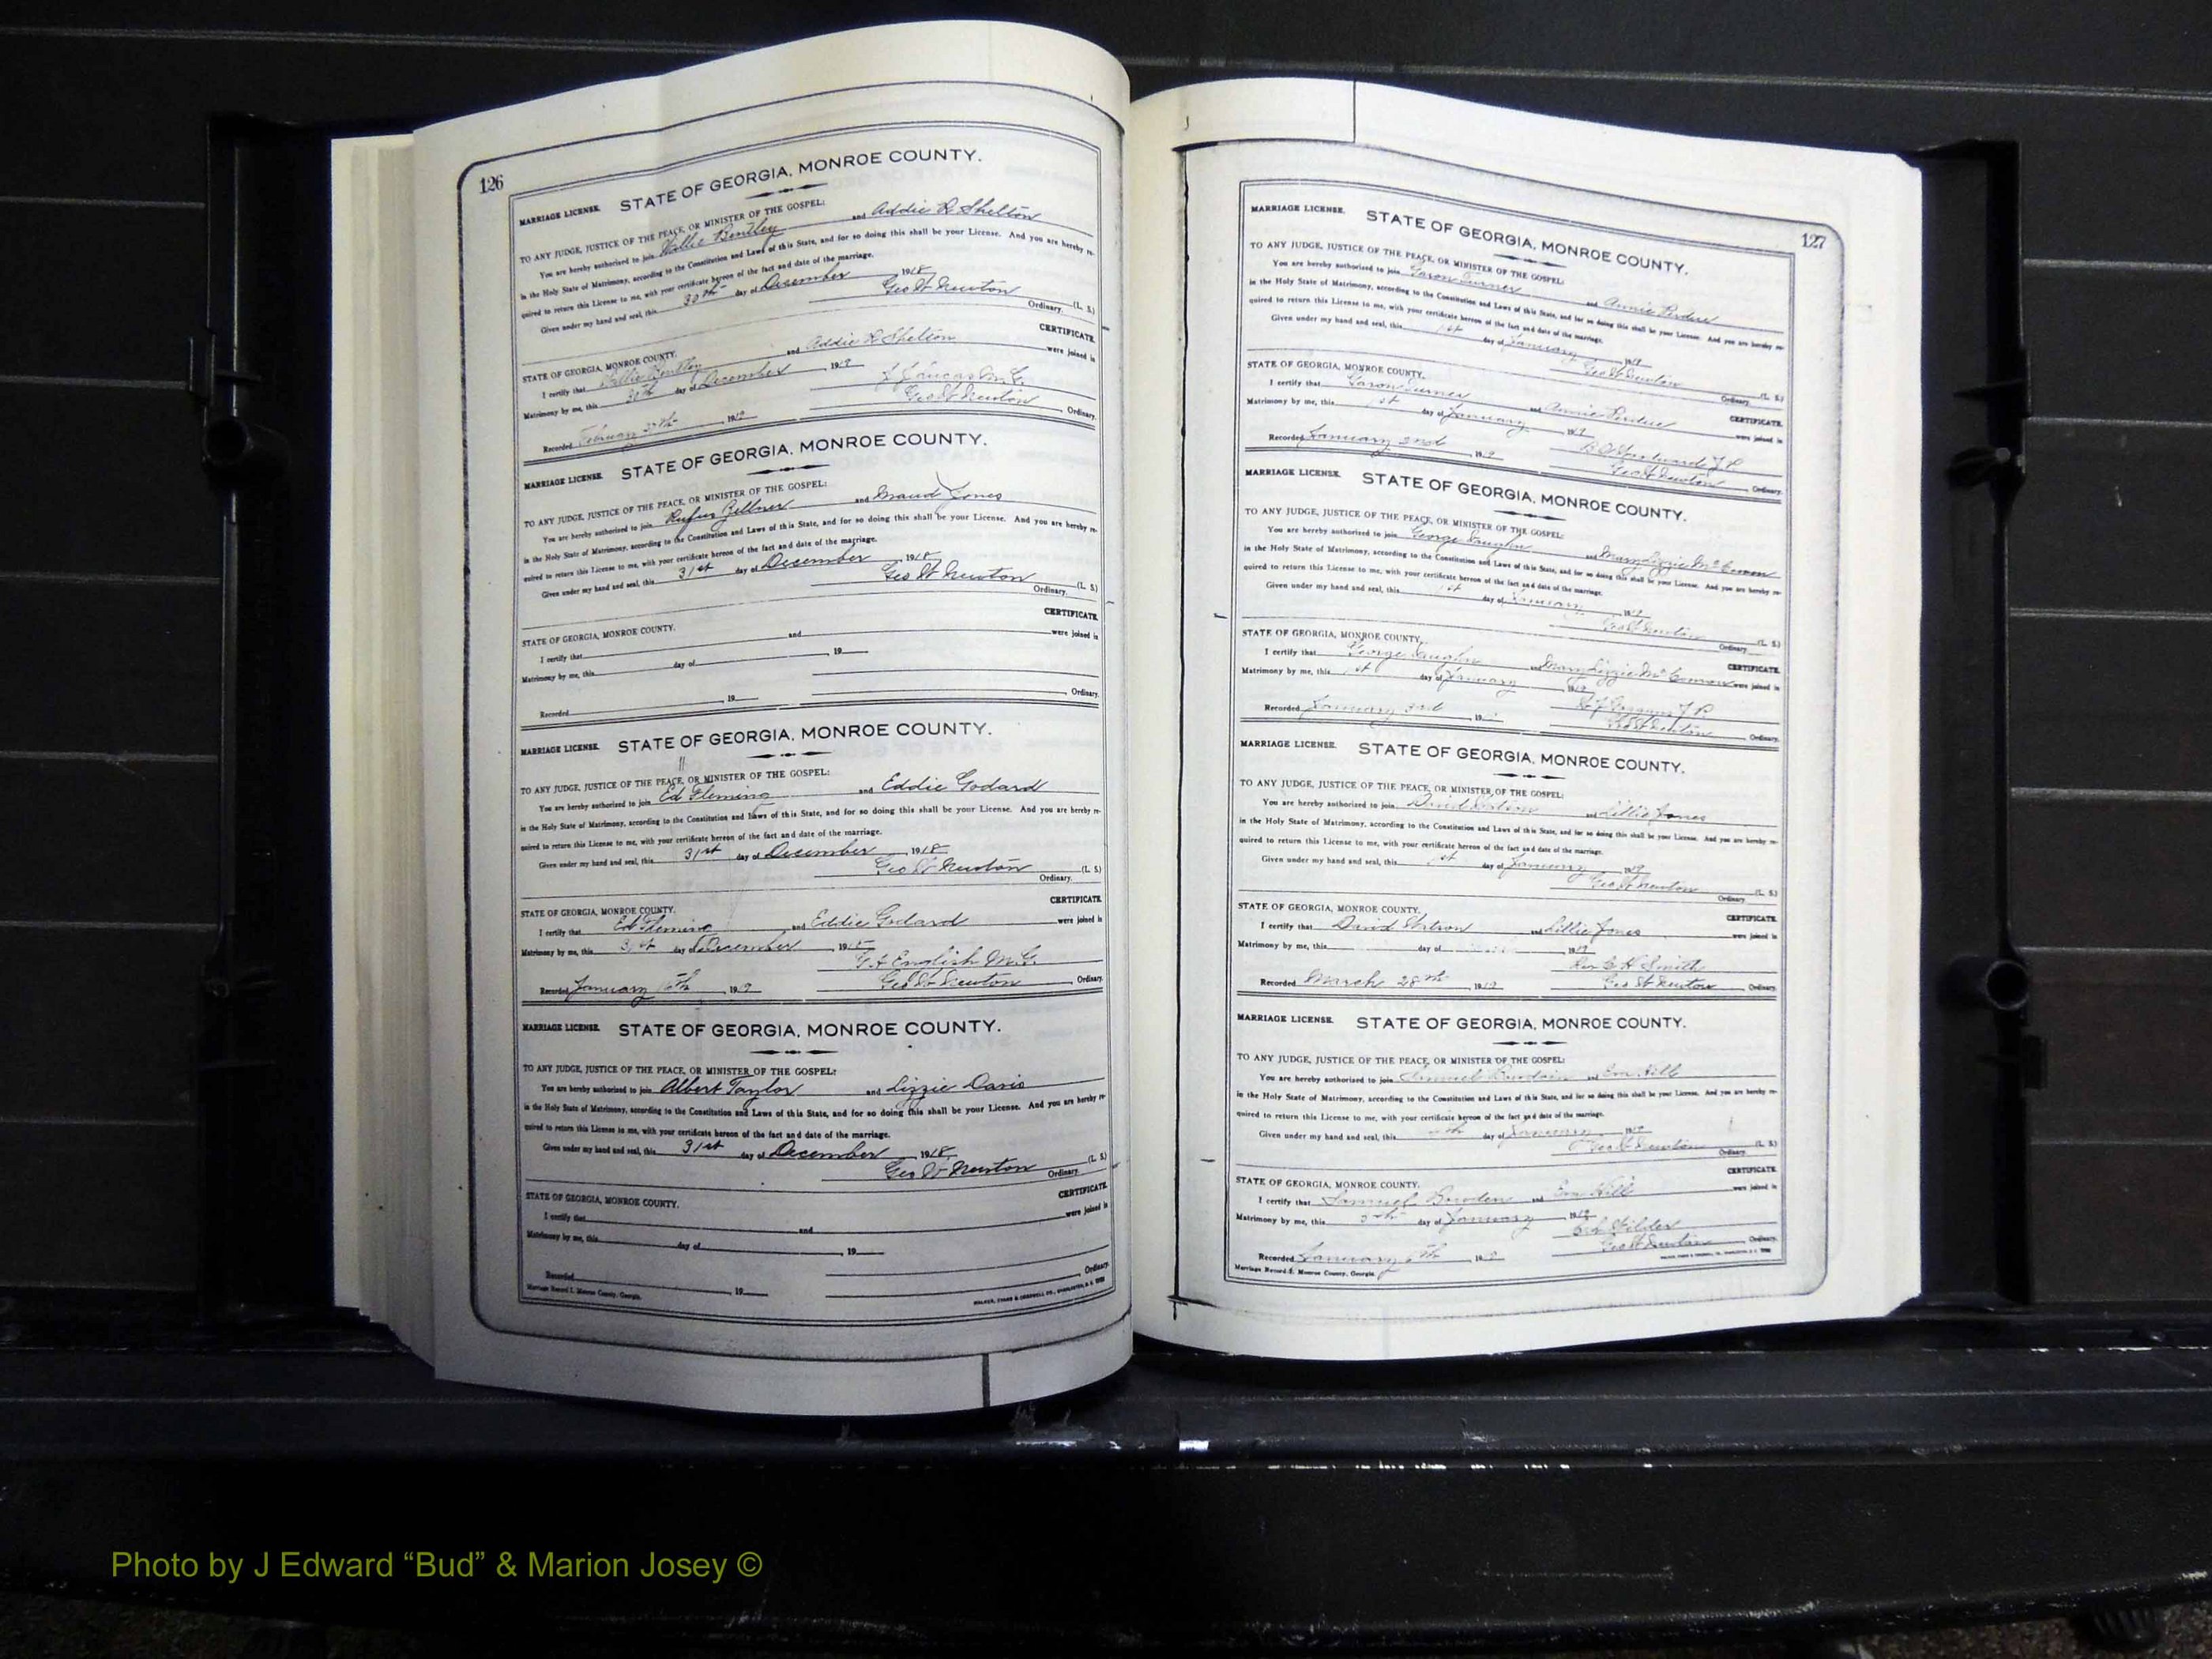 126
MARRIAGE LICENSE. STATE OF GEORGIA, MONROE COUNTY.
TO ANY JUDGE, JUSTICE OF THE PEACE, OR MINISTER OF THE GOSPEL:
You are hereby authorized to join Wallie Bentley and Addie R Shelton
in the Holy State of Matrimony, according to the Constitution and Laws of this State, and for so doing this shall be your License. And you are hereby re-
quired to return this License to me, with your certificate hereon of the fact and date of the marriage.
Given under my hand and seal, this 30th day of December 1918
Geo W Newton (L. S.)
Ordinary.
CERTIFICATE.
STATE OF GEORGIA, MONROE COUNTY.
I certify that Wallie Bentley and Addie R Shelton were joined in
Matrimony by me, this 30th day of December, 1919
J. J. Lucas M.G.
Recorded February 27th 1919 Geo W Newton, Ordinary.
MARRIAGE LICENSE. STATE OF GEORGIA, MONROE COUNTY.
TO ANY JUDGE, JUSTICE OF THE PEACE, OR MINISTER OF THE GOSPEL:
You are hereby authorized to join Rufus Zellner and Maud Jones
in the Holy State of Matrimony, according to the Constitution and Laws of this State, and for so doing this shall be your License. And you are hereby re-
quired to return this License to me, with your certificate hereon of the fact and date of the marriage.
Given under my hand and seal, this 31st day of December, 1918
Geo W Newton (L. S.)
Ordinary.
CERTIFICATE.
STATE OF GEORGIA, MONROE COUNTY.
I certify that and were joined in
Matrimony by me, this day of , 19
Recorded , 19 , Ordinary.
MARRIAGE LICENSE. STATE OF GEORGIA, MONROE COUNTY.
TO ANY JUDGE, JUSTICE OF THE PEACE, OR MINISTER OF THE GOSPEL:
You are hereby authorized to join Ed Fleming and Eddie Godard
in the Holy State of Matrimony, according to the Constitution and Laws of this State, and for so doing this shall be your License. And you are hereby re-
quired to return this License to me, with your certificate hereon of the fact and date of the marriage.
Given under my hand and seal, this 31st day of December, 1918
Geo W Newton (L. S.)
Ordinary.
CERTIFICATE.
STATE OF GEORGIA, MONROE COUNTY.
I certify that Ed Fleming and Eddie Godard were joined in
Matrimony by me, this 31st day of December, 1915
G. A English M.G.
Recorded January, 1919 Geo W Newton, Ordinary.
MARRIAGE LICENSE. STATE OF GEORGIA, MONROE COUNTY.
TO ANY JUDGE, JUSTICE OF THE PEACE, OR MINISTER OF THE GOSPEL:
You are hereby authorized to join Albert Taylor and Lizzie Davis
in the Holy State of Matrimony, according to the Constitution and Laws of this State, and for so doing this shall be your License. And you are hereby re-
quired to return this License to me, with your certificate hereon of the fact and date of the marriage.
Given under my hand and seal, this 31st day of December, 1918
Geo W Newton (L. S.)
Ordinary.
CERTIFICATE.
STATE OF GEORGIA, MONROE COUNTY.
I certify that and were joined in
Matrimony by me, this day of , 19
Recorded , 19 , Ordinary.
Marriage Record I. Monroe County, Georgia.
127
MARRIAGE LICENSE. STATE OF GEORGIA, MONROE COUNTY.
TO ANY JUDGE, JUSTICE OF THE PEACE, OR MINISTER OF THE GOSPEL:
You are hereby authorized to join Turner and Annie Perdue
in the Holy State of Matrimony, according to the Constitution and Laws of this State, and for so doing this shall be your License. And you are hereby re-
quired to return this License to me, with your certificate hereon of the fact and date of the marriage.
Given under my hand and seal, this 1st day of January, 1919
Geo W Newton (L. S.)
Ordinary.
CERTIFICATE.
STATE OF GEORGIA, MONROE COUNTY.
I certify that Turner and Annie Perdue were joined in
Matrimony by me, this 1st day of January, 1919
Recorded January 2nd, 1919 Geo W Newton, Ordinary.
MARRIAGE LICENSE. STATE OF GEORGIA, MONROE COUNTY.
TO ANY JUDGE, JUSTICE OF THE PEACE, OR MINISTER OF THE GOSPEL:
You are hereby authorized to join George Vaughn and Mary Lizzie
in the Holy State of Matrimony, according to the Constitution and Laws of this State, and for so doing this shall be your License. And you are hereby re-
quired to return this License to me, with your certificate hereon of the fact and date of the marriage.
Given under my hand and seal, this 1st day of January, 1919
Geo W Newton (L. S.)
Ordinary.
CERTIFICATE.
STATE OF GEORGIA, MONROE COUNTY.
I certify that George Vaughn and Mary Lizzie were joined in
Matrimony by me, this 1st day of January, 1919
Recorded January 3rd, 19 Geo W Newton, Ordinary.
MARRIAGE LICENSE. STATE OF GEORGIA, MONROE COUNTY.
TO ANY JUDGE, JUSTICE OF THE PEACE, OR MINISTER OF THE GOSPEL:
You are hereby authorized to join David and Lillie Jones
in the Holy State of Matrimony, according to the Constitution and Laws of this State, and for so doing this shall be your License. And you are hereby re-
quired to return this License to me, with your certificate hereon of the fact and date of the marriage.
Given under my hand and seal, this 1st day of January, 1919
Geo W Newton (L. S.)
Ordinary.
CERTIFICATE.
STATE OF GEORGIA, MONROE COUNTY.
I certify that David Watson and Lillie Jones were joined in
Matrimony by me, this day of , 1919
Rev C H Smith
Recorded March 28th, 1919 Geo W Newton, Ordinary.
MARRIAGE LICENSE. STATE OF GEORGIA, MONROE COUNTY.
TO ANY JUDGE, JUSTICE OF THE PEACE, OR MINISTER OF THE GOSPEL:
You are hereby authorized to join Samuel and Eva Hill
in the Holy State of Matrimony, according to the Constitution and Laws of this State, and for so doing this shall be your License. And you are hereby re-
quired to return this License to me, with your certificate hereon of the fact and date of the marriage.
Given under my hand and seal, this day of January, 1919
Geo W Newton (L. S.)
Ordinary.
CERTIFICATE.
STATE OF GEORGIA, MONROE COUNTY.
I certify that Samuel Bowden and Eva Hill were joined in
Matrimony by me, this 5th day of January, 1919
Recorded January 6th, 1919 Geo W Newton, Ordinary.
Marriage Record I. Monroe County, Georgia.
Photo by J Edward “Bud” & Marion Josey ©